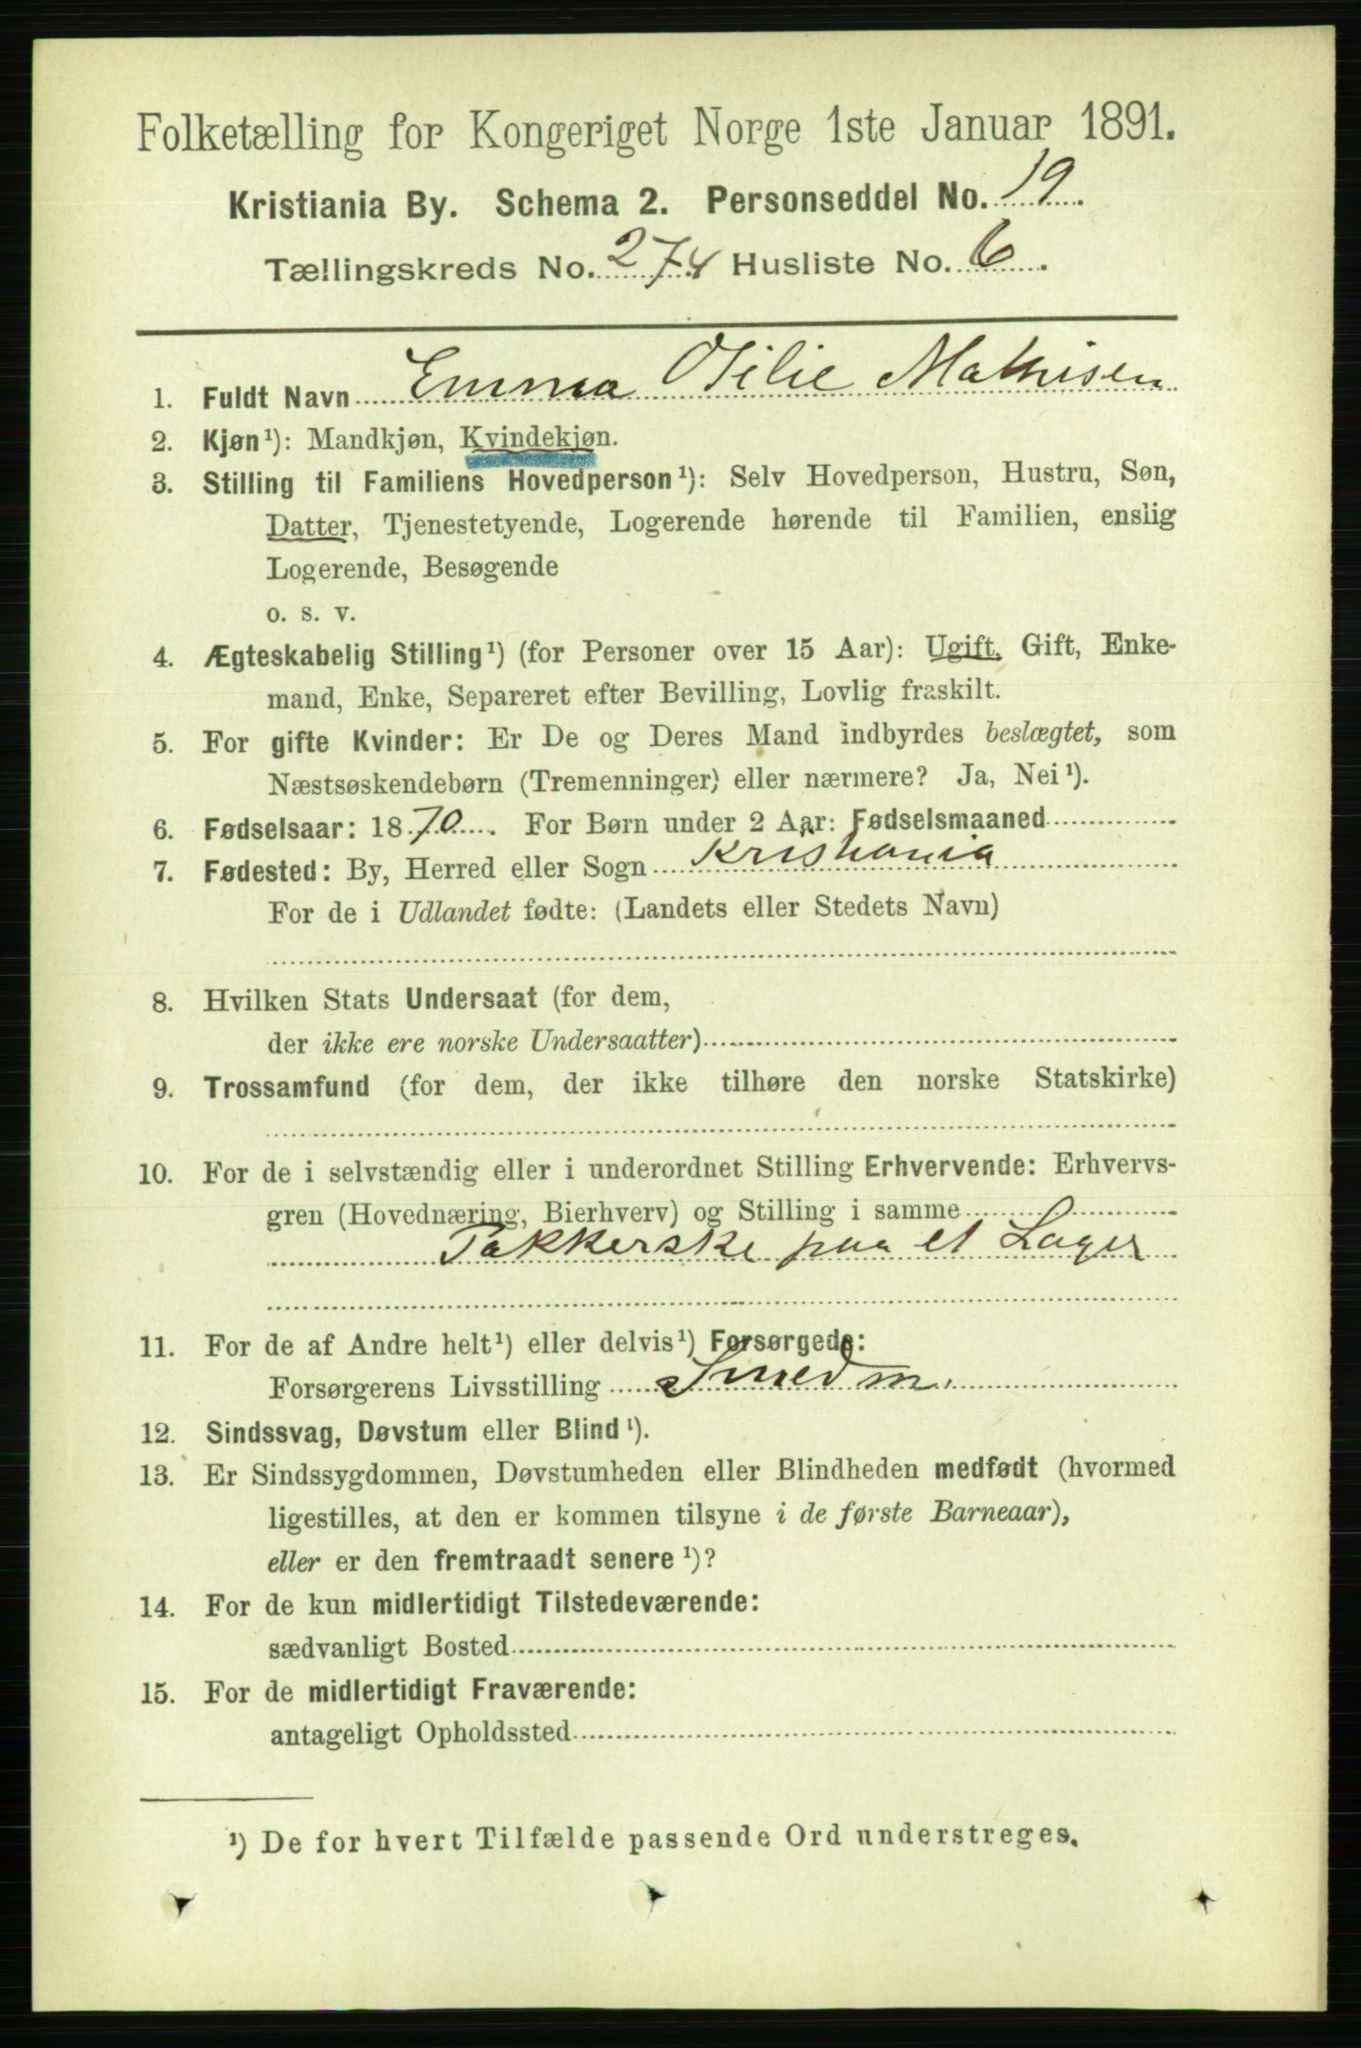 Folketælling for Kongeriget Norge 1ste Januar 1891.
Kristiania By. Schema 2. Personseddel No. 19.
Tællingskreds No. 274 Husliste No. 6.
1. Fuldt Navn Emma Otilie Mathisen
2. Kjøn¹): Mandkjøn, Kvindekjøn.
3. Stilling til Familiens Hovedperson¹): Selv Hovedperson, Hustru, Søn,
Datter, Tjenestetyende, Logerende hørende til Familien, enslig
Logerende, Besøgende
o. s. v.
4. Ægteskabelig Stilling¹) (for Personer over 15 Aar): Ugift, Gift, Enke-
mand, Enke, Separeret efter Bevilling, Lovlig fraskilt.
5. For gifte Kvinder: Er De og Deres Mand indbyrdes beslægtet, som
Næstsøskendebørn (Tremenninger) eller nærmere? Ja, Nei¹).
6. Fødselsaar: 1870. For Børn under 2 Aar: Fødselsmaaned
7. Fødested: By, Herred eller Sogn Kristiania
For de i Udlandet fødte: (Landets eller Stedets Navn)
8. Hvilken Stats Undersaat (for dem,
der ikke ere norske Undersaatter)
9. Trossamfund (for dem, der ikke tilhøre den norske Statskirke)
10. For de i selvstændig eller i underordnet Stilling Erhvervende: Erhvervs-
gren (Hovednæring, Bierhverv) og Stilling i samme
Pakkerske paa et Lager
11. For de af Andre helt¹) eller delvis¹) Forsørgede:
Forsørgerens Livsstilling Smedm.
12. Sindssvag, Døvstum eller Blind¹).
13. Er Sindssygdommen, Døvstumheden eller Blindheden medfødt (hvormed
ligestilles, at den er kommen tilsyne i de første Barneaar),
eller er den fremtraadt senere¹)?
14. For de kun midlertidigt Tilstedeværende:
sædvanligt Bosted
15. For de midlertidigt Fraværende:
antageligt Opholdssted
¹) De for hvert Tilfælde passende Ord understreges.